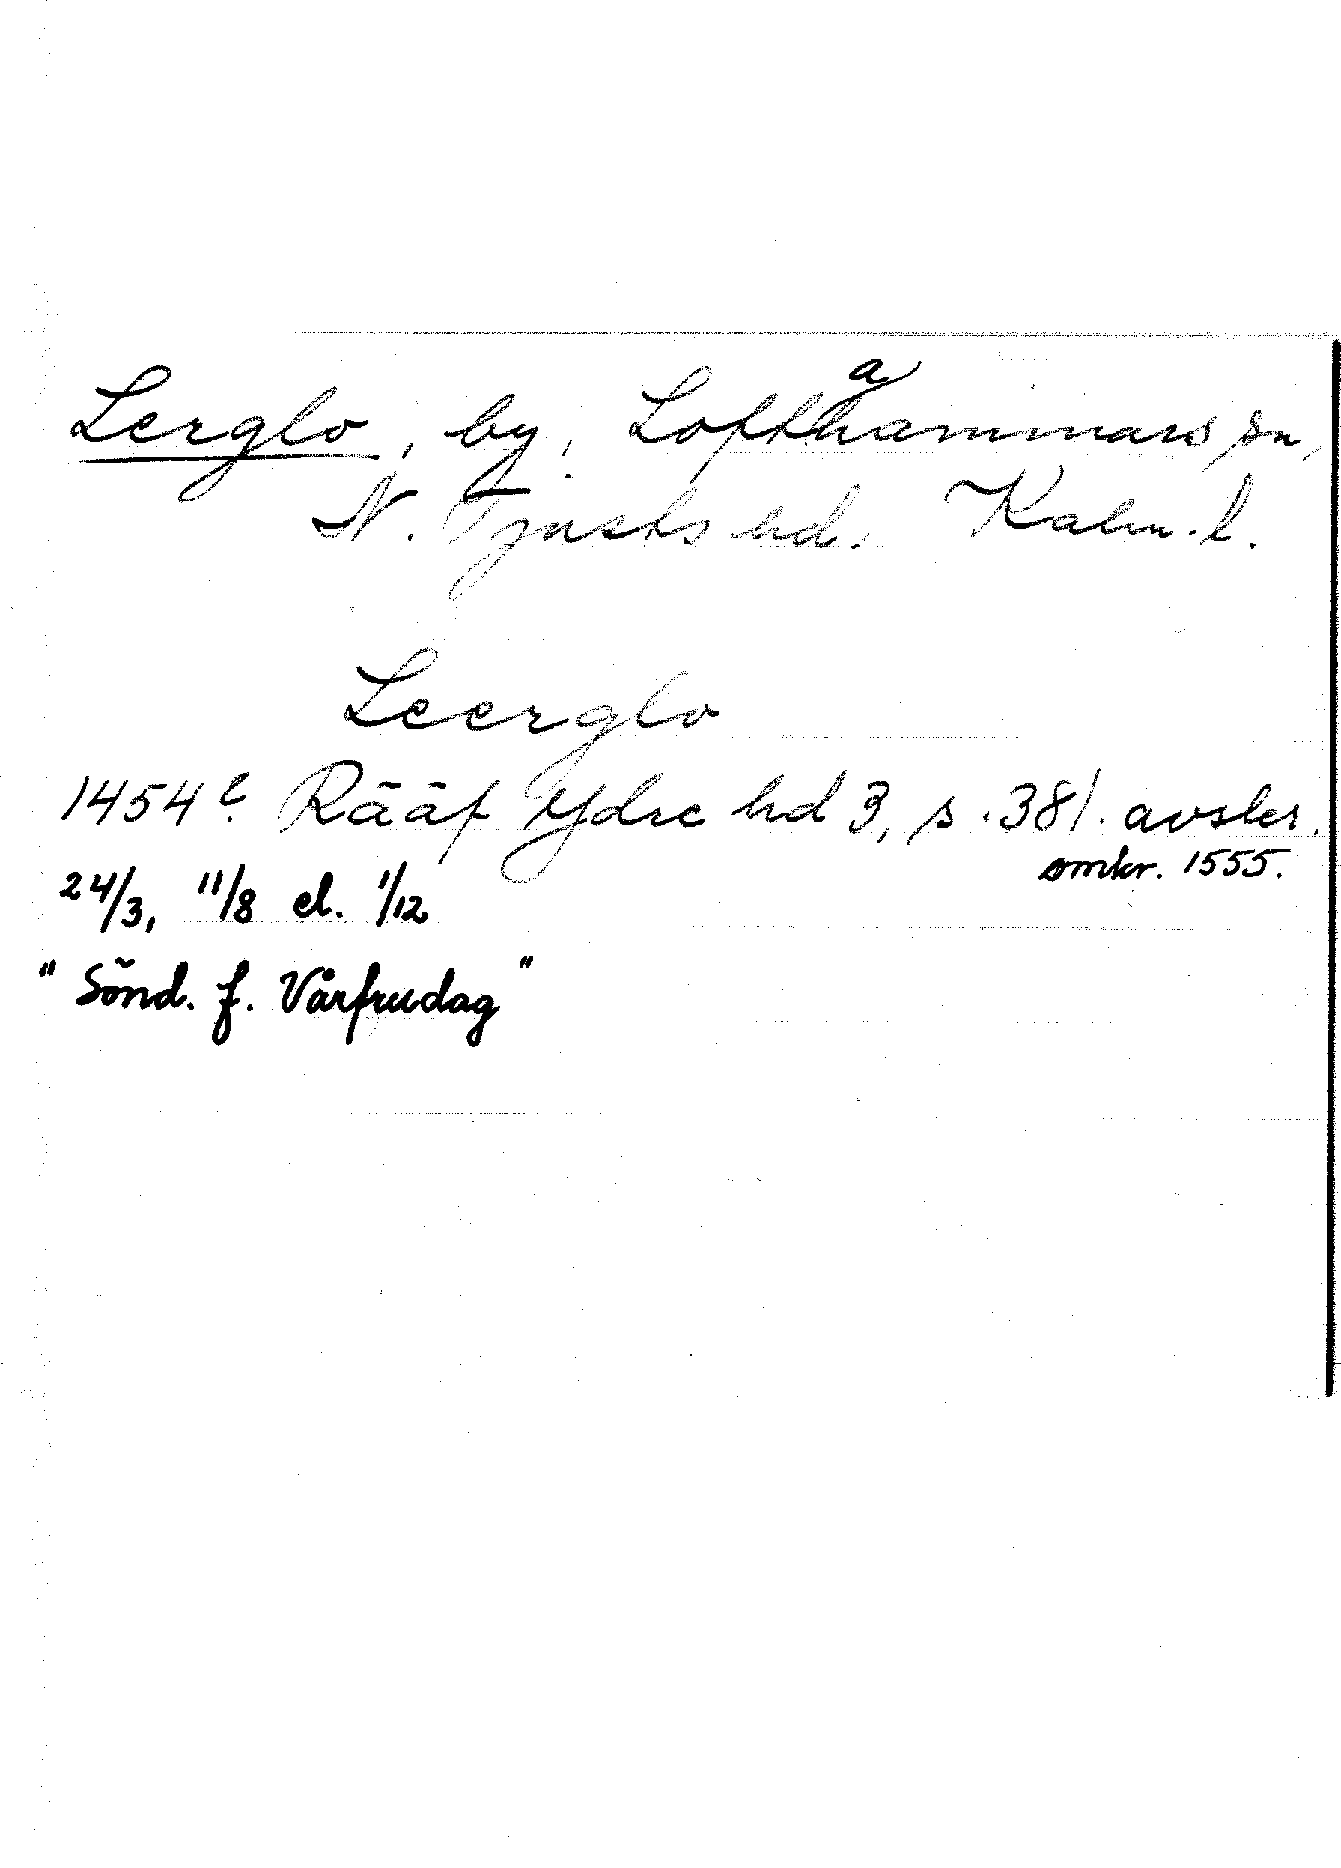 Lerglo, by, Lofthammars sn,
a
N. Tjusts hd. Kalm. l.
Leerglo
1454 ? Rääf Ydre hd 3, s. 381. avskr.
omkr. 1555.
24/3, 11/8 el. 1/12
"Sönd. f. Vårfrudag"